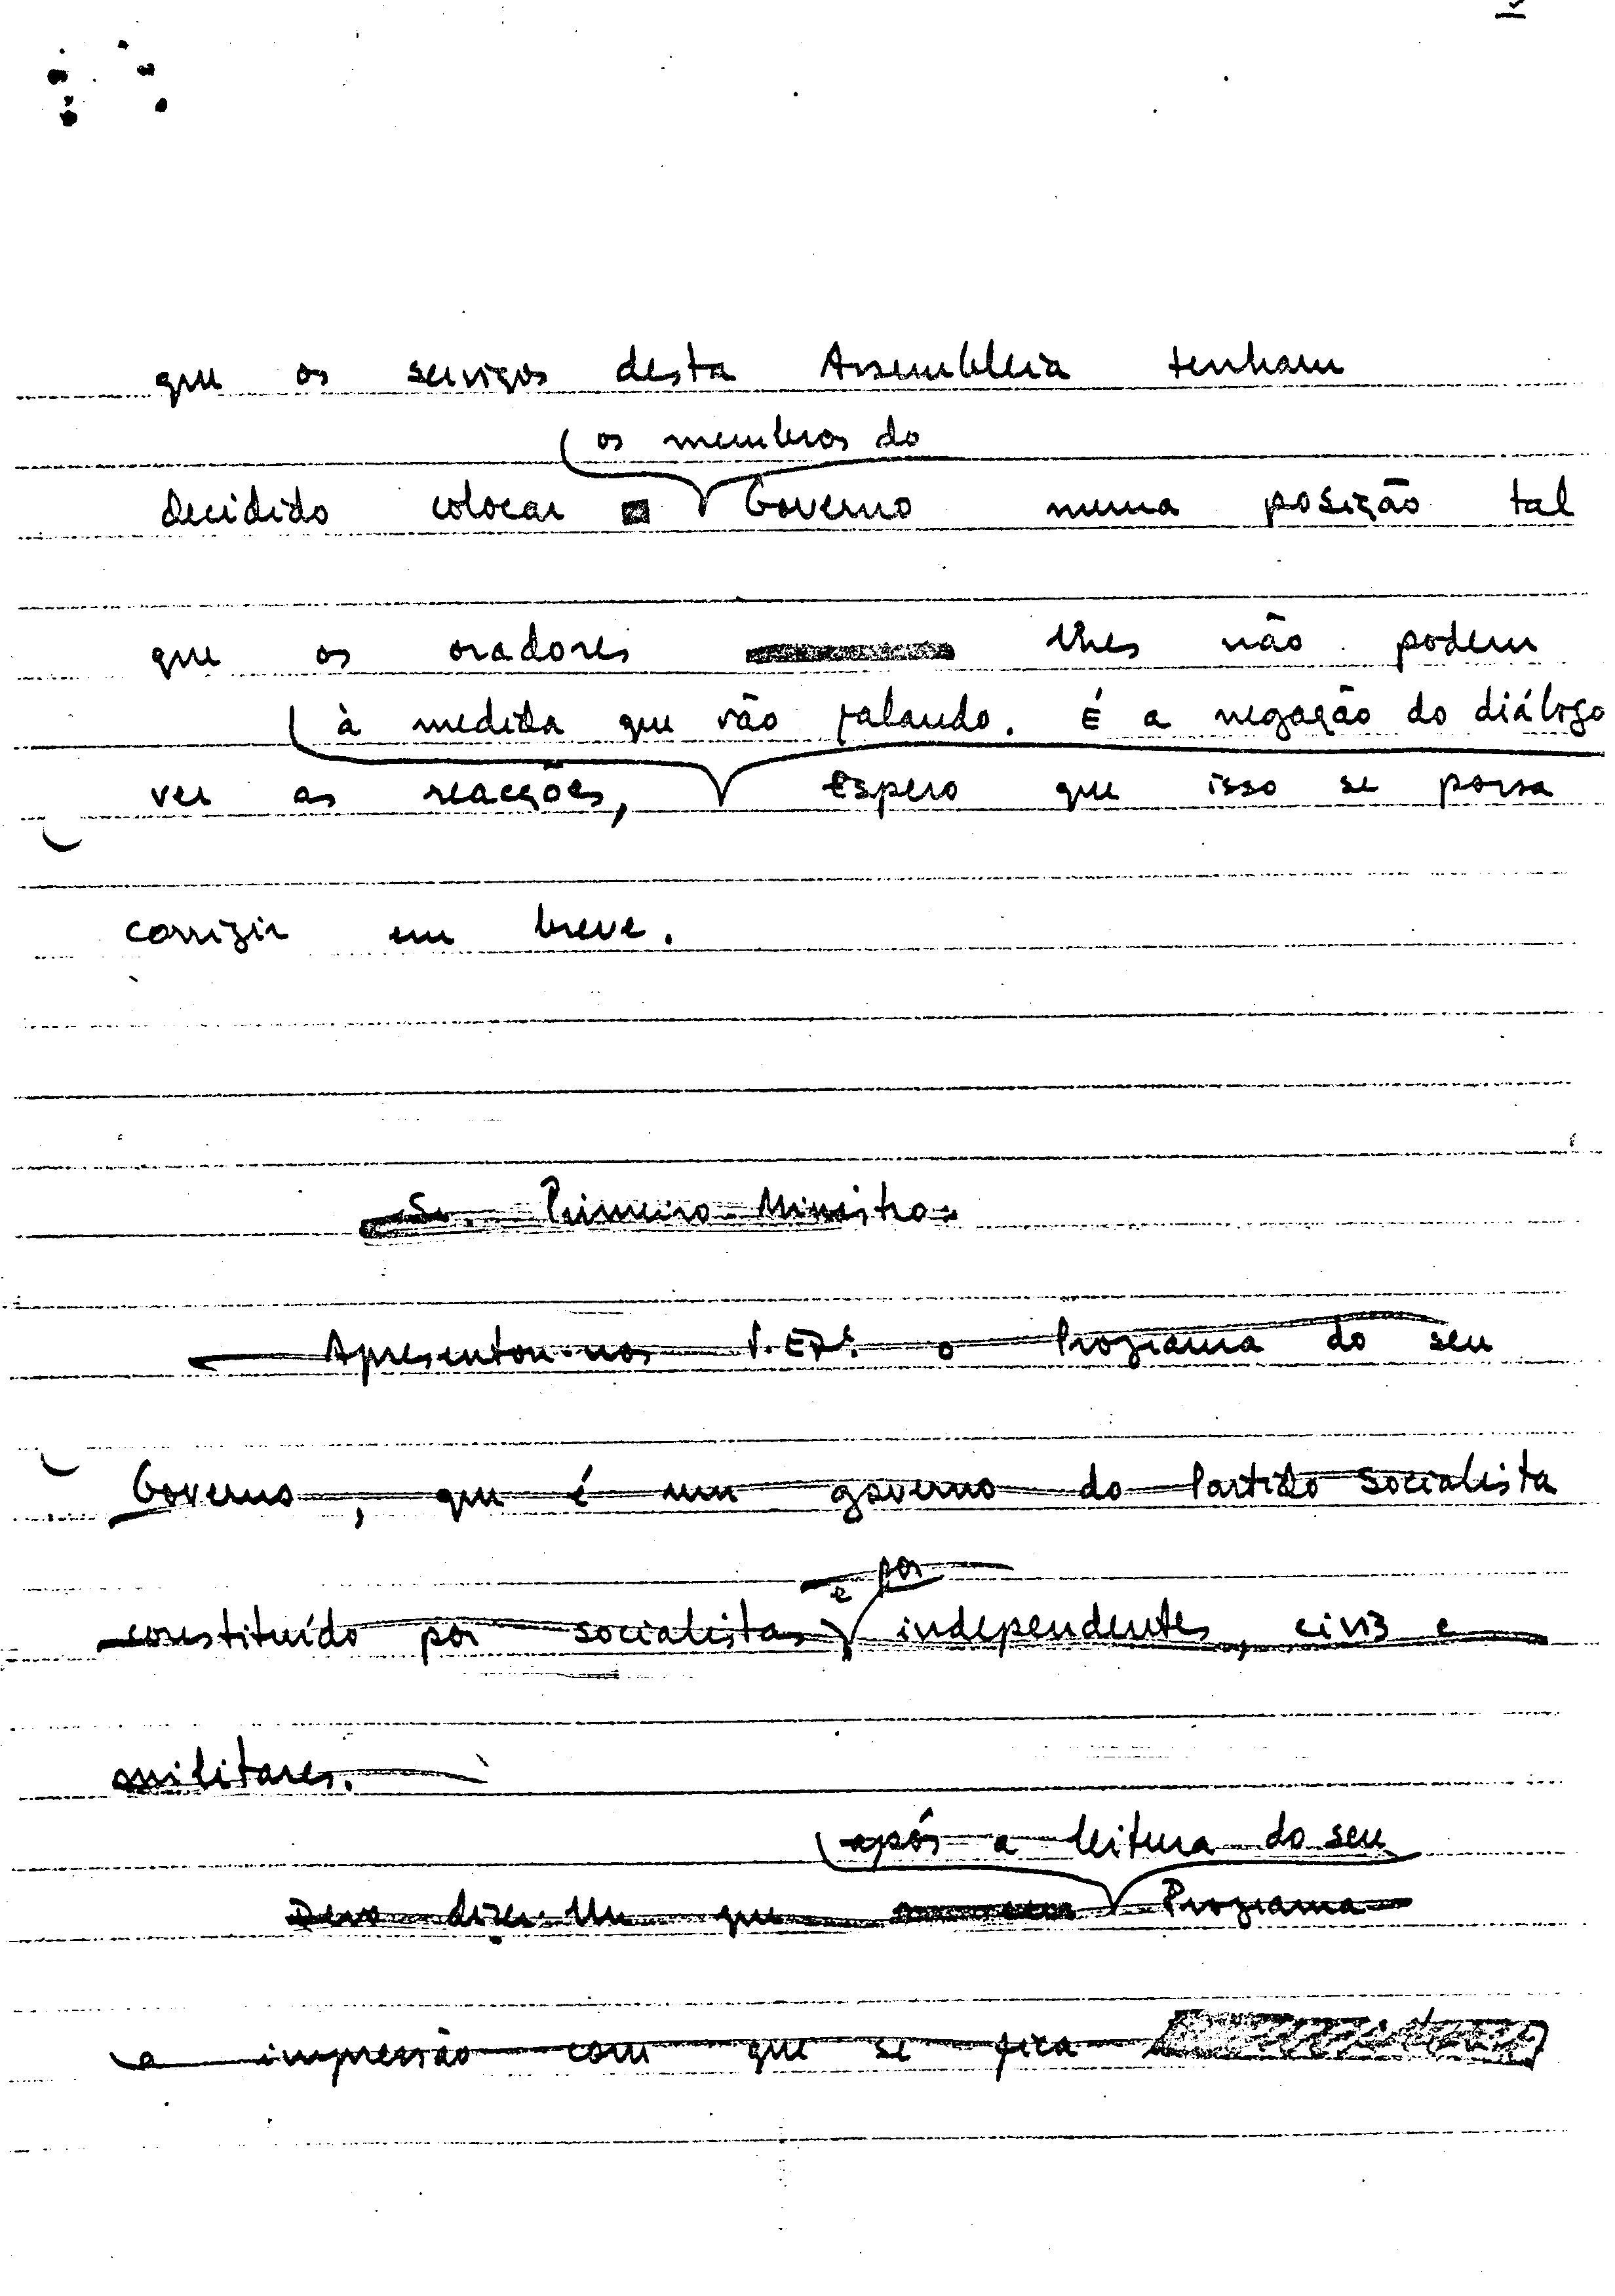 que os serviços desta Assembleia tenham
os membros do
decidido colocar Governo numa posição tal
que os oradores lhes não podem
à medida que vão falando. É a negação do diálogo
ver as reacções, Espero que isso se possa
corrigir em breve.
Sr. Primeiro-Ministro:
Apresentou-nos V. Exª. o Programa do seu
Governo, que é um governo do Partido Socialista
e por
constituído por socialistas independentes, civis e
militares.
após a leitura do seu
Devo dizer-lhe que Programa
a impressão com que se fica